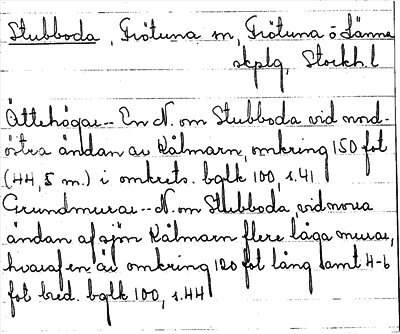 Stubboda, Frötuna sn, Frötuna o Länna
skplg, Stockh. l
Ättehögar -- En N. om Stubboda vid nord-
östra ändan av Kålmarn, omkring 150 fot
(44,5 m.) i omkrets. bglk 100, s.41
Grundmurar -- N. om Stubboda, vid norra
ändan af sjön Kålmarn flere låga murar,
hvaraf en är omkring 120 fot lång samt 4-6
fot bred. bglk 100, s.44